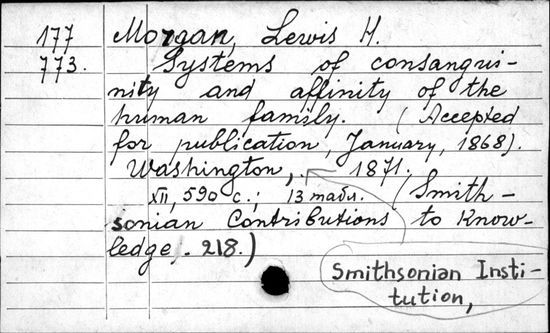 177 Morgan, Lewis H.
773. Systems of consangui-
nity and affinity of the
human family. (Accepted
for publication, January, 1868).
Washington, 1871.
XII, 590 с.; 13 табл. (Smith-
sonian Contributions to Know-
ledge, . 218.)
Smithsonian Insti-
tution,